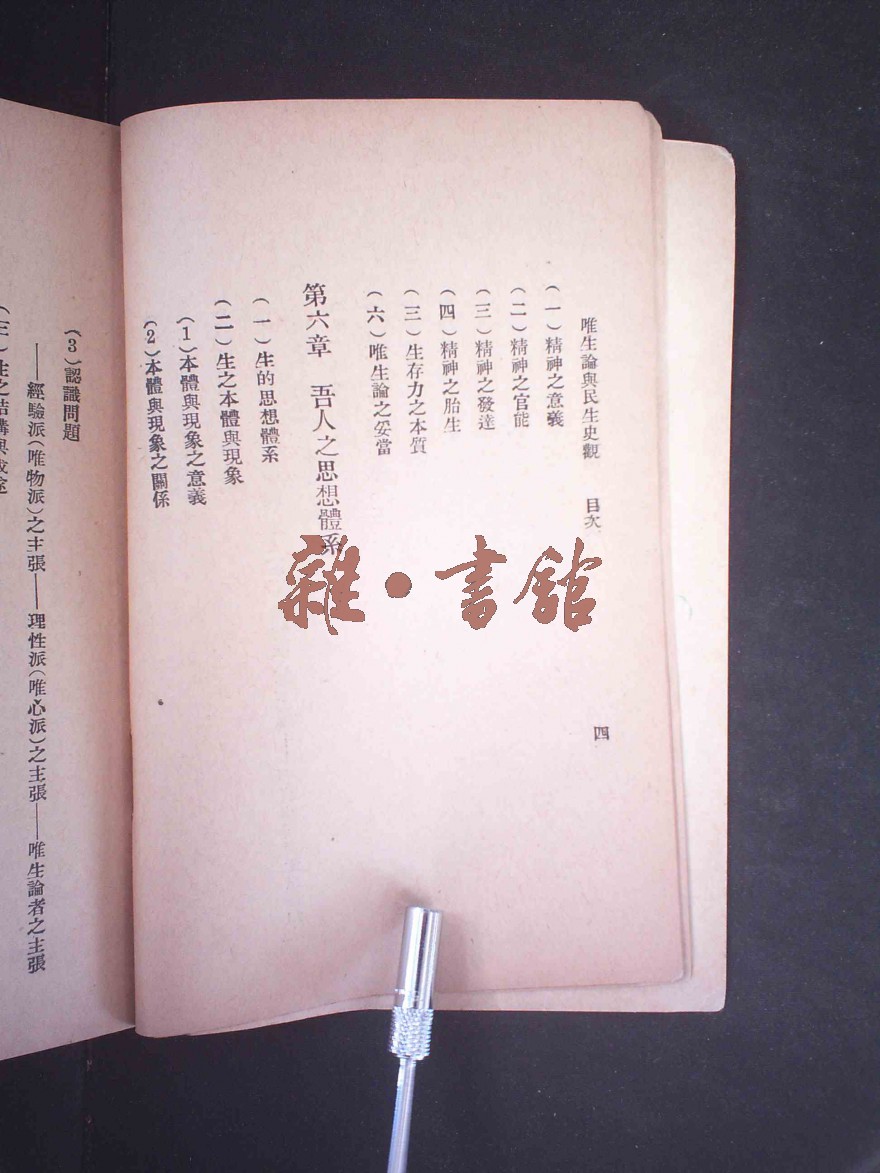 唯生論與民生史觀　目次　四
（一）精神之意義
（二）精神之官能
（三）精神之發達
（四）精神之胎生
（三）生存力之本質
（六）唯生論之妥當
第六章　吾人之思想體系
（一）生的思想體系
（二）生之本體與現象
（1）本體與現象之意義
（2）本體與現象之關係
（3）認識問題
——經驗派（唯物派）之主張——理性派（唯心派）之主張——唯生論者之主張
雜·書館